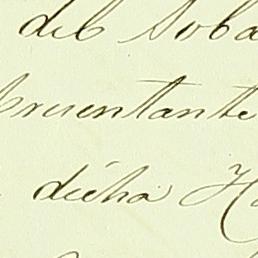 del Soba
cruentante
dicha H